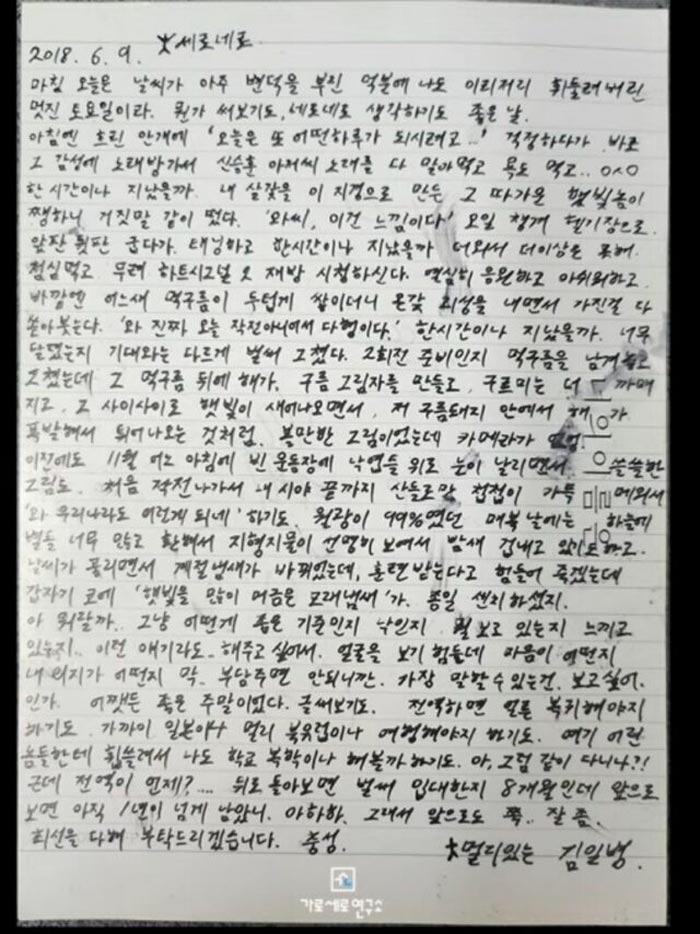 2018. 6. 9. ★세로네로
마침 오늘은 날씨가 아주 변덕을 부린 덕분에 나도 이리저리 휘둘려버린
멋진 토요일이라. 뭔가 써보기도, 세로네로 생각하기도 좋은 날.
아침엔 흐린 안개에 '오늘은 또 어떤하루가 되시려고..' 걱정하다가 바로
그 감성에 노래방가서 신승훈 아저씨 노래를 다 말아먹고 욕도 먹고.. ㅇㅅㅇ
한시간이나 지났을까. 내 살갗을 이 지경으로 만든 그 따가운 햇빛놈이
쨍하니 거짓말 같이 떴다. '와씨, 이건 느낌이다' 오일 챙겨 헬기장으로.
앞판 뒷판 굽다가. 태닝하고 한시간이나 지났을까 더워서 더이상은 못해.
점심먹고 무려 하트시그널 2 재방 시청하신다. 열심히 응원하고 아쉬워하고.
바깥엔 어느새 먹구름이 두텁게 쌓이더니 온갖 괴성을 내면서 가진걸 다
쏟아붓는다. '와 진짜 오늘 작전아니어서 다행이다.' 한시간이나 지났을까. 너무
달랬는지 기대와는 다르게 벌써 그쳤다. 2회전 준비인지 먹구름을 남겨놓고
그쳤는데 그 먹구름 뒤에 해가. 구름 그림자를 만들고. 구르미는 더 까매
지고. 그 사이사이로 햇빛이 새어나오면서. 저 구름돼지 안에서 해가
폭발해서 튀어나오는 것처럼. 볼만한 그림이었는데 카메라가
이전에도 11월 어느 아침에 빈 운동장에 낙엽들 위로 눈이 날리면서. 쓸쓸한
그림도. 처음 작전나가서 내 시야 끝까지 산들로만 첩첩이 가득 메워서
'와 우리나라도 이런게 되네' 하기도. 월광이 99%였던 매복 날에는 하늘에
별들 너무 많고 환해서 지형지물이 선명히 보여서 밤새 겁내고 있기도하고.
날씨가 풀리면서 계절냄새가 바뀌었는데, 훈련받는다고 힘들어 죽겠는데
갑자기 코에 '햇빛을 많이 머금은 모래냄새'가. 종일 센치하셨지.
아 뭐랄까. 그냥 어떤게 좋은 기준인지 낙인지 뭘 보고 있는지 느끼고
있는지.. 이런 얘기라도.. 해주고 싶어서. 얼굴을 보기 힘들데 마음이 어떤지
내 의지가 어떤지 막.. 부담주면 안되니깐. 가장 말할수 있는건. 보고싶어.
인가. 어쨋든 좋은 주말이었다. 글써보기도. 전역하면 얼른 복귀해야지
하기도. 가까이 일본이나 멀리 북유럽이나 여행해야지 하기도. 여기 어린
놈들한테 휩쓸려서 나도 학교 복학이나 해볼까하기도. 아, 그럼 같이 다니나?!
근데 전역이 언제?.... 뒤로 돌아보면 벌써 입대한지 8개월인데 앞으로
보면 아직 1년이 넘게 남았니. 아하하. 그래서 앞으로도 쭉.. 잘 좀.
최선을 다해 부탁드리겠습니다. 충성.
★멀리있는 김일병.
가로세로연구소